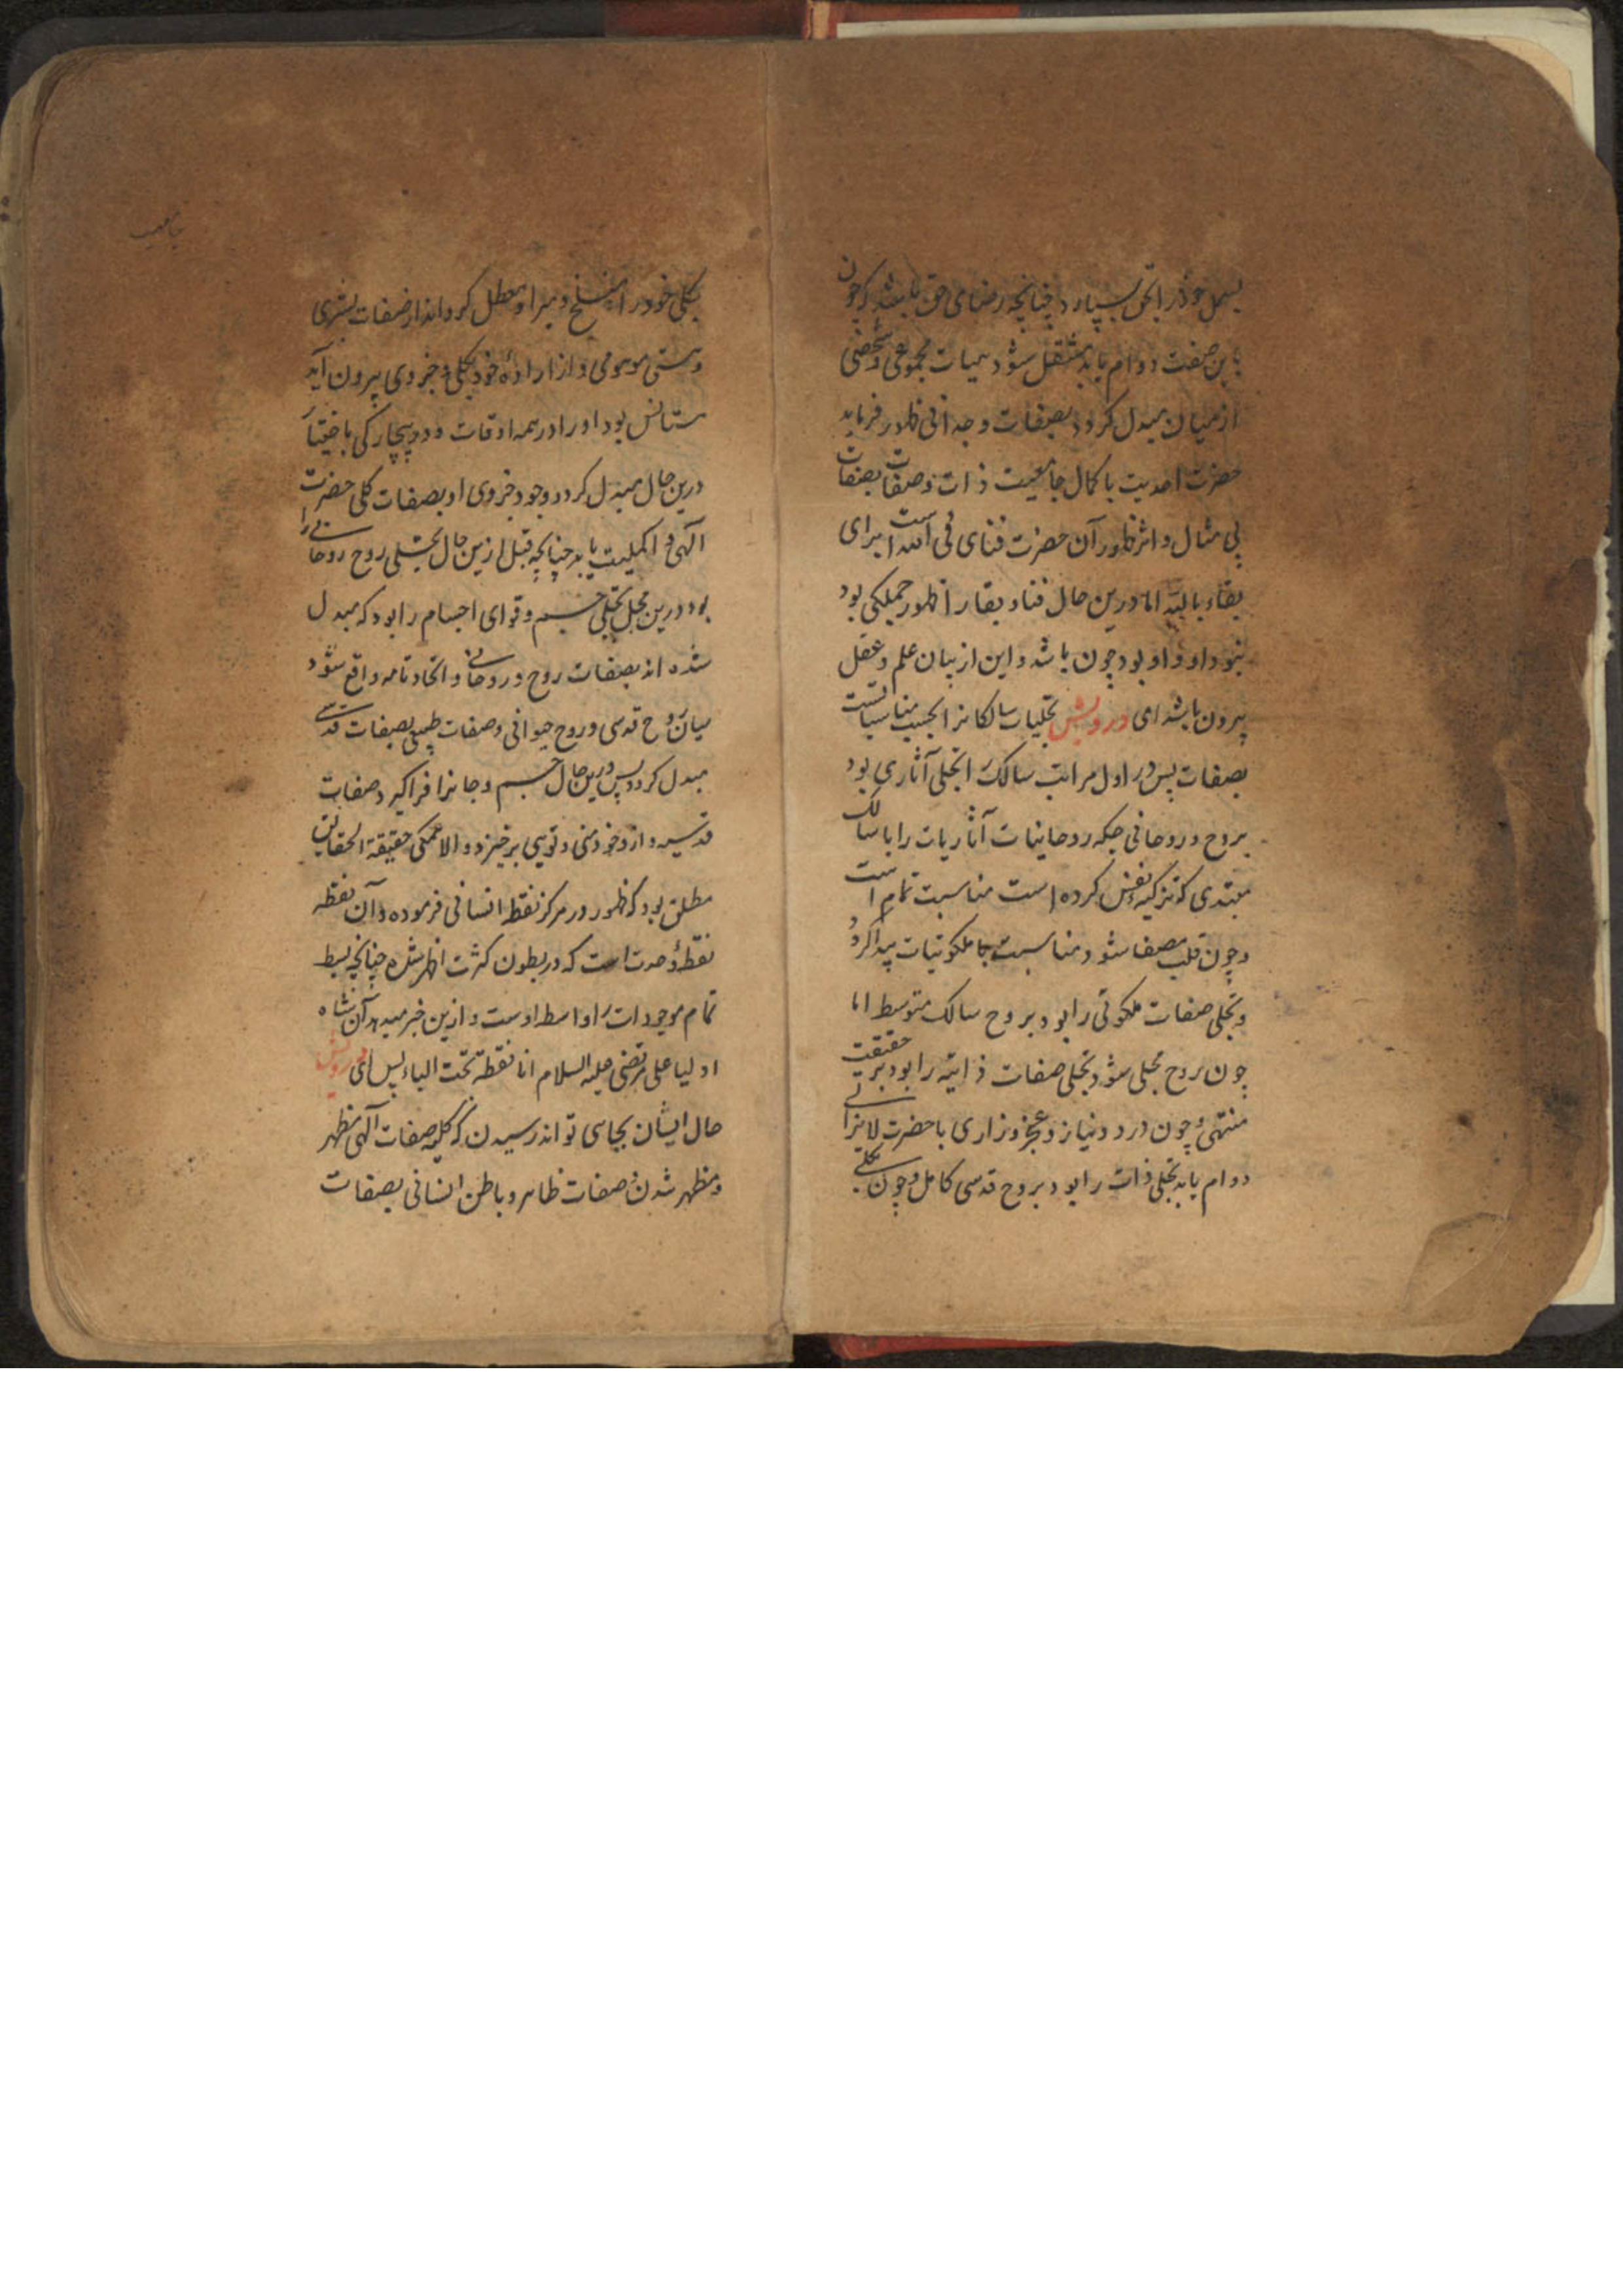 خود را بحق بسپارد چنانچه رضای حق باشد و چون
باین صفت دوام یابد منتقل شود هیات مجموعی و شخصی
از میان مبدل کردد بصفات وجدانی ظهور فرماید
حضرت احدیت با کمال جامعیت ذات و صفات بصفات
بی مثال و اثر ظهور آن حضرت فنای فی الله است برای
بقاء بالله اما درین حال فنا و بقا را ظهور جملکی بود
بنود او و او بود چون باشد و این از بیان علم و عقل
بیرون باشد ای درویش تجلیات سالکانرا بحسب مناسبتست
بصفات پس در اول مراتب سالک را تجلی آثاری بود
بروح و روحانی جکه روحانیات آثاریات را با سالک
مبتدی که تزکیه نفس کرده است مناسبت تمام است
و چون قلب مصفا شود و مناسبت با ملکوتیات پیدا کرد
و تجلی صفات ملکوتی را بود بروح سالک متوسط اما
چون بروح تجلی شود تجلی صفات ذاتیه را بود بر حقیقت
منتهی و چون درد و نیاز و عجز و زاری با حضرت لایزالی
دوام یابد تجلی ذات را بود بروح قدسی کامل و چون بکلی
بکلی خود را منسلخ و مبرا و معطل کرداند از صفات بشری
و هستی موهومی و از اراده خود بکلی و جزوی بیرون آید
ستانس بود او را در همه اوقات و در بیچارکی با ختیار
درین حال مبدل کردد وجود جزوی او بصفات کلی حضرت
آلهی و اکملیت یابد چنانچه قبل ازین حال تجلی روح روحانی را
بود درین محل تجلی جسم و قوای اجسام را بود که مبدل
شده اند بصفات روح و روحانی و اتحاد تامه واقع شود
میان روح قدسی و روح حیوانی و صفات طبیعی بصفات قدسی
مبدل کردد پس درین حال جسم و جانرا فراکیرد صفات
قدسیه و از خود منی و تویی برخیزد و الا همکی حقیقة الحقایق
مطلق بود که ظهور در مرکز نقطه انسانی فرموده و آن نقطه
نقطهٔ وحدت است که در بطون کثرت اظهر شده چنانچه بسط
تمام موجودات را واسطه اوست و ازین خبر میدهد آن شاه
اولیا علی مرتضی علیه السلام انا نقطة تحت الباء پس ای درویش
حال ایشان بجایی تواند رسیدن که کلیه صفات آلهی مظهر
و مظهر شدن صفات ظاهر و باطن انسانی بصفات